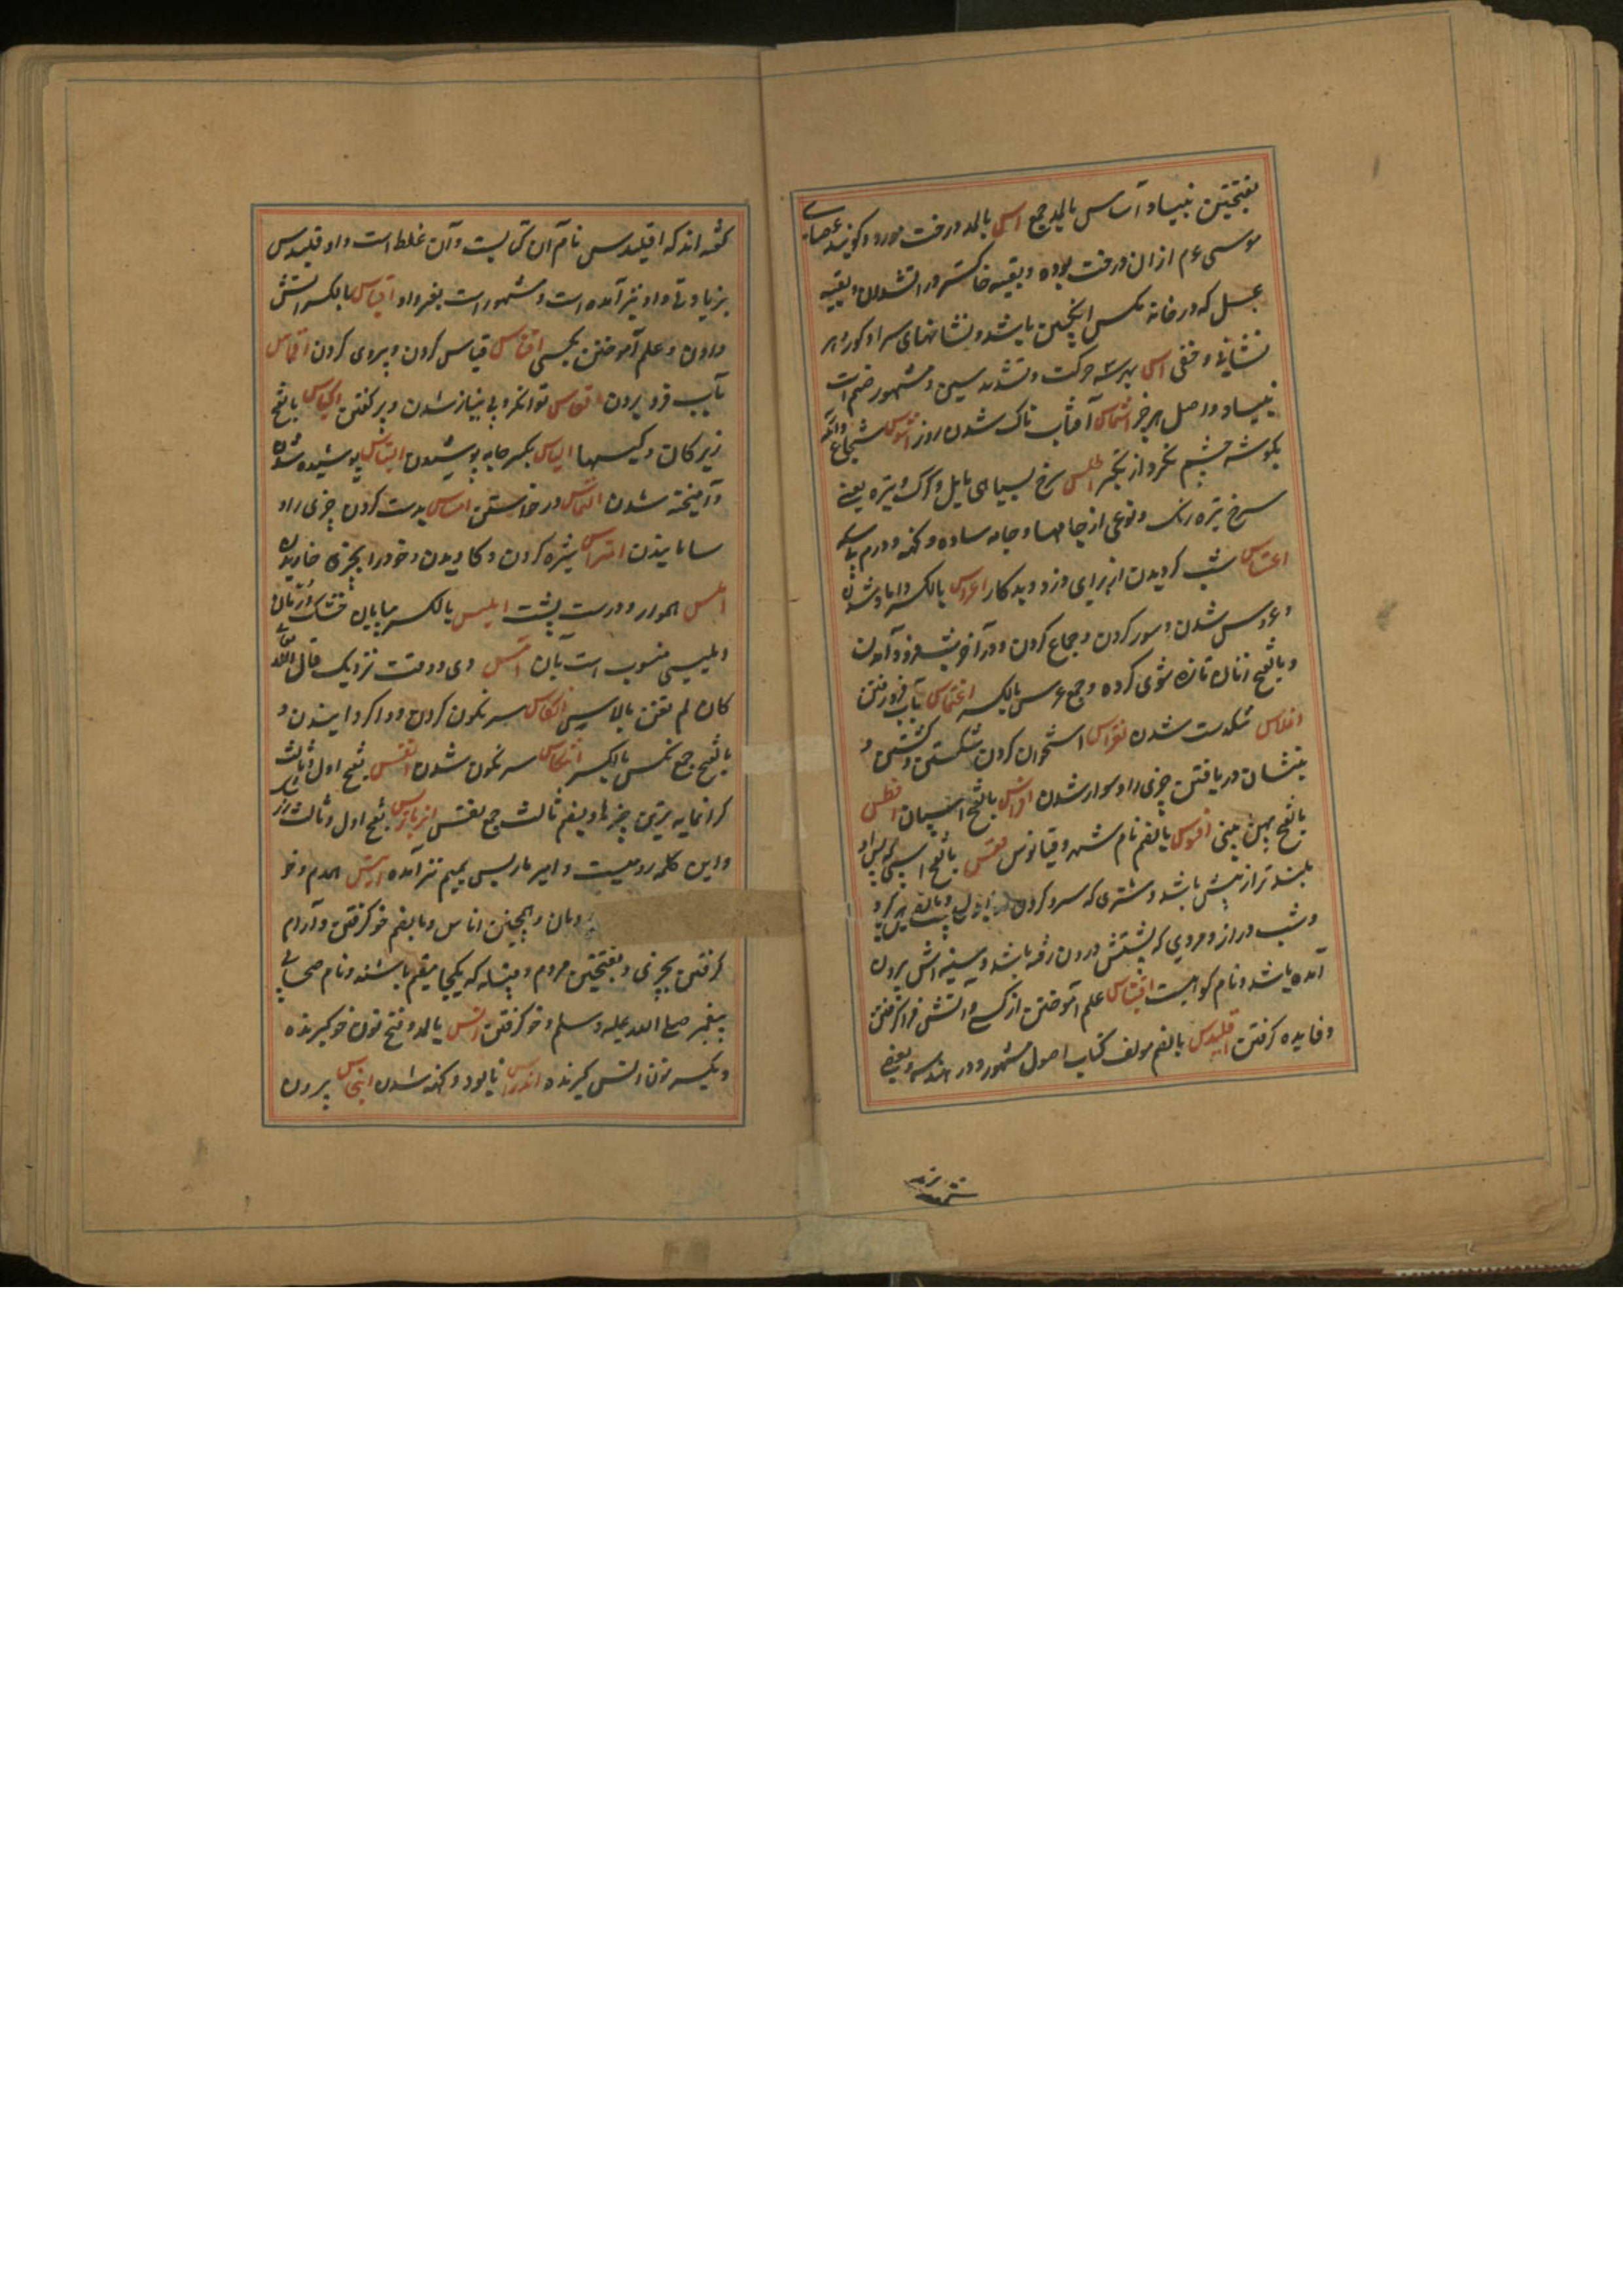 بفتحتین بنیاد و آساس بالمد جمع اس بالمد درخت مورد و گویند عصای
موسی ع م ازان درخت بوده و بقیه خاکستر در اتشدان و بقیه
عسل که در خانه مکس انجبین باشد و نشانهای سرا و کور و هر
نشانی خفی اس بهر سه حرکت و تشدید سین و مشهور ضم است
بنیاد و اصل هر چیز اشماس آفتاب ناک شدن روز اشوس شجاع وانکه
بکوشه چشم نکرد از تکبر اطلس سرخ بسیاهی مایل و کرک تیره یعنی
سرخ تیره رنک و نوعی از جامها و جامه ساده و کهنه و درم بی سکه
اعتساس شب کردیدن از برای دزد و بدکار اعراس بالکسر داماد شدن
و عروس شدن و سور کردن و جماع کردن و در آخر شب فرود آمدن
و بالفتح زنان تازه شوی کرده و جمع عرس بالکسر اغتماس بآب فرو رفتن
افلاس تنکدست شدن افتراس استخوان کردن شکستن و کشتن و
بنشان دریافتن چیزی را و سوار شدن افراس بالفتح اسپان افطس
بالفتح پهن بینی افسوس بالضم نام شهر دقیانوس اقعس بالفتح اسپی که پس او
بلند تر از پیش باشد و شتری که سر و کردن
و شب دراز و مردی که پشتش درون رفته باشد و سینه اش برون
آمده باشد و نام کوهیست اقتباس علم آموختن از کسی و اتش فرا کرفتن
و فایده کرفتن اقلیدس بالضم مولف کتاب اصول مشهور در هندسه و بعضی
کفته اند که اقلیدس نام آن کتابیست و آن غلط است و اوقلیدس
بزیادتی واو نیز آمده است و مشهور است بغیر واو اقباس بالکسر اتش
دادن و علم آموختن بکسی اقتیاس قیاس کردن و پیروی کردن اقماس
بآب فرو بردن اقعاس توانکر و بی نیاز شدن و برکفتن اکیاس بالفتح
زیرکان و کیسها الباس بکسر جامه پوشیدن التباس پوشیده شدن
و آمیخته شدن التماس درخواستن امساس بدست کردن چیزی را و
ساییدن امتراس ستیزه کردن و کاویدن و خود را بچیزی خاریدن
املس هموار و درست پشت املیس بالکسر بیابان خشک
و بلیسی منسوب است بآن امس دی و وقت نزدیک قال الله تعالی
کان لم تغن بالامس انکاس سرنکون کردن و وا کردانیدن و
بالفتح جمع نکس بالکسر انتکاس سرنکون شدن انفس بفتح اول و ثالث
کرانمایه ترین چیزها و بضم ثالث جمع نفس انبرباریس بفتح اول و ثالث
و این کلمه رومیست و امبر باریس بمیم نیز آمده انیس همدم و خو
ردمان و همچنین اناس و بالضم خو کرفتن و آرام
کرفتن بچیزی و بفتحتین مردم و قبیله که یکجا مقیم باشند و نام صحابی
پیغمبر صلی الله علیه و سلم و خو کرفتن انس بالمد و فتح نون خو کیرنده
و بکسر نون انس کیرنده اندراس نابود و کهنه شدن انبجاس برون